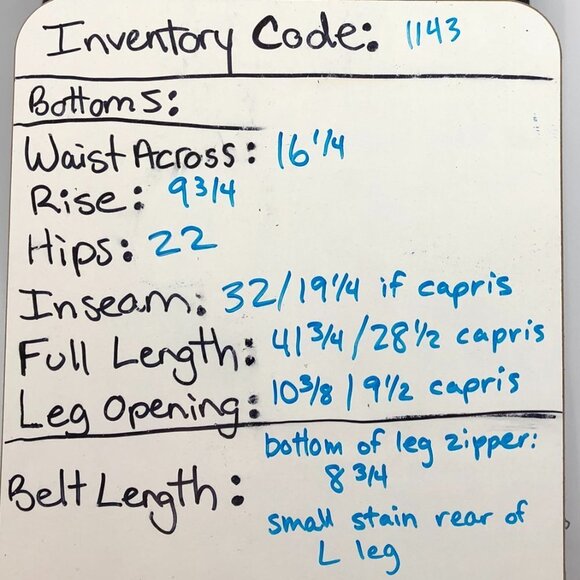 Inventory Code: 1143
Bottoms:
Waist Across: 16 1/4
Rise: 9 3/4
Hips: 22
Inseam: 32/19 1/4 if capris
Full Length: 41 3/4 / 28 1/2 capris
Leg Opening: 10 3/8 | 9 1/2 capris
bottom of leg zipper:
8 3/4
Belt Length:
small stain rear of
L leg